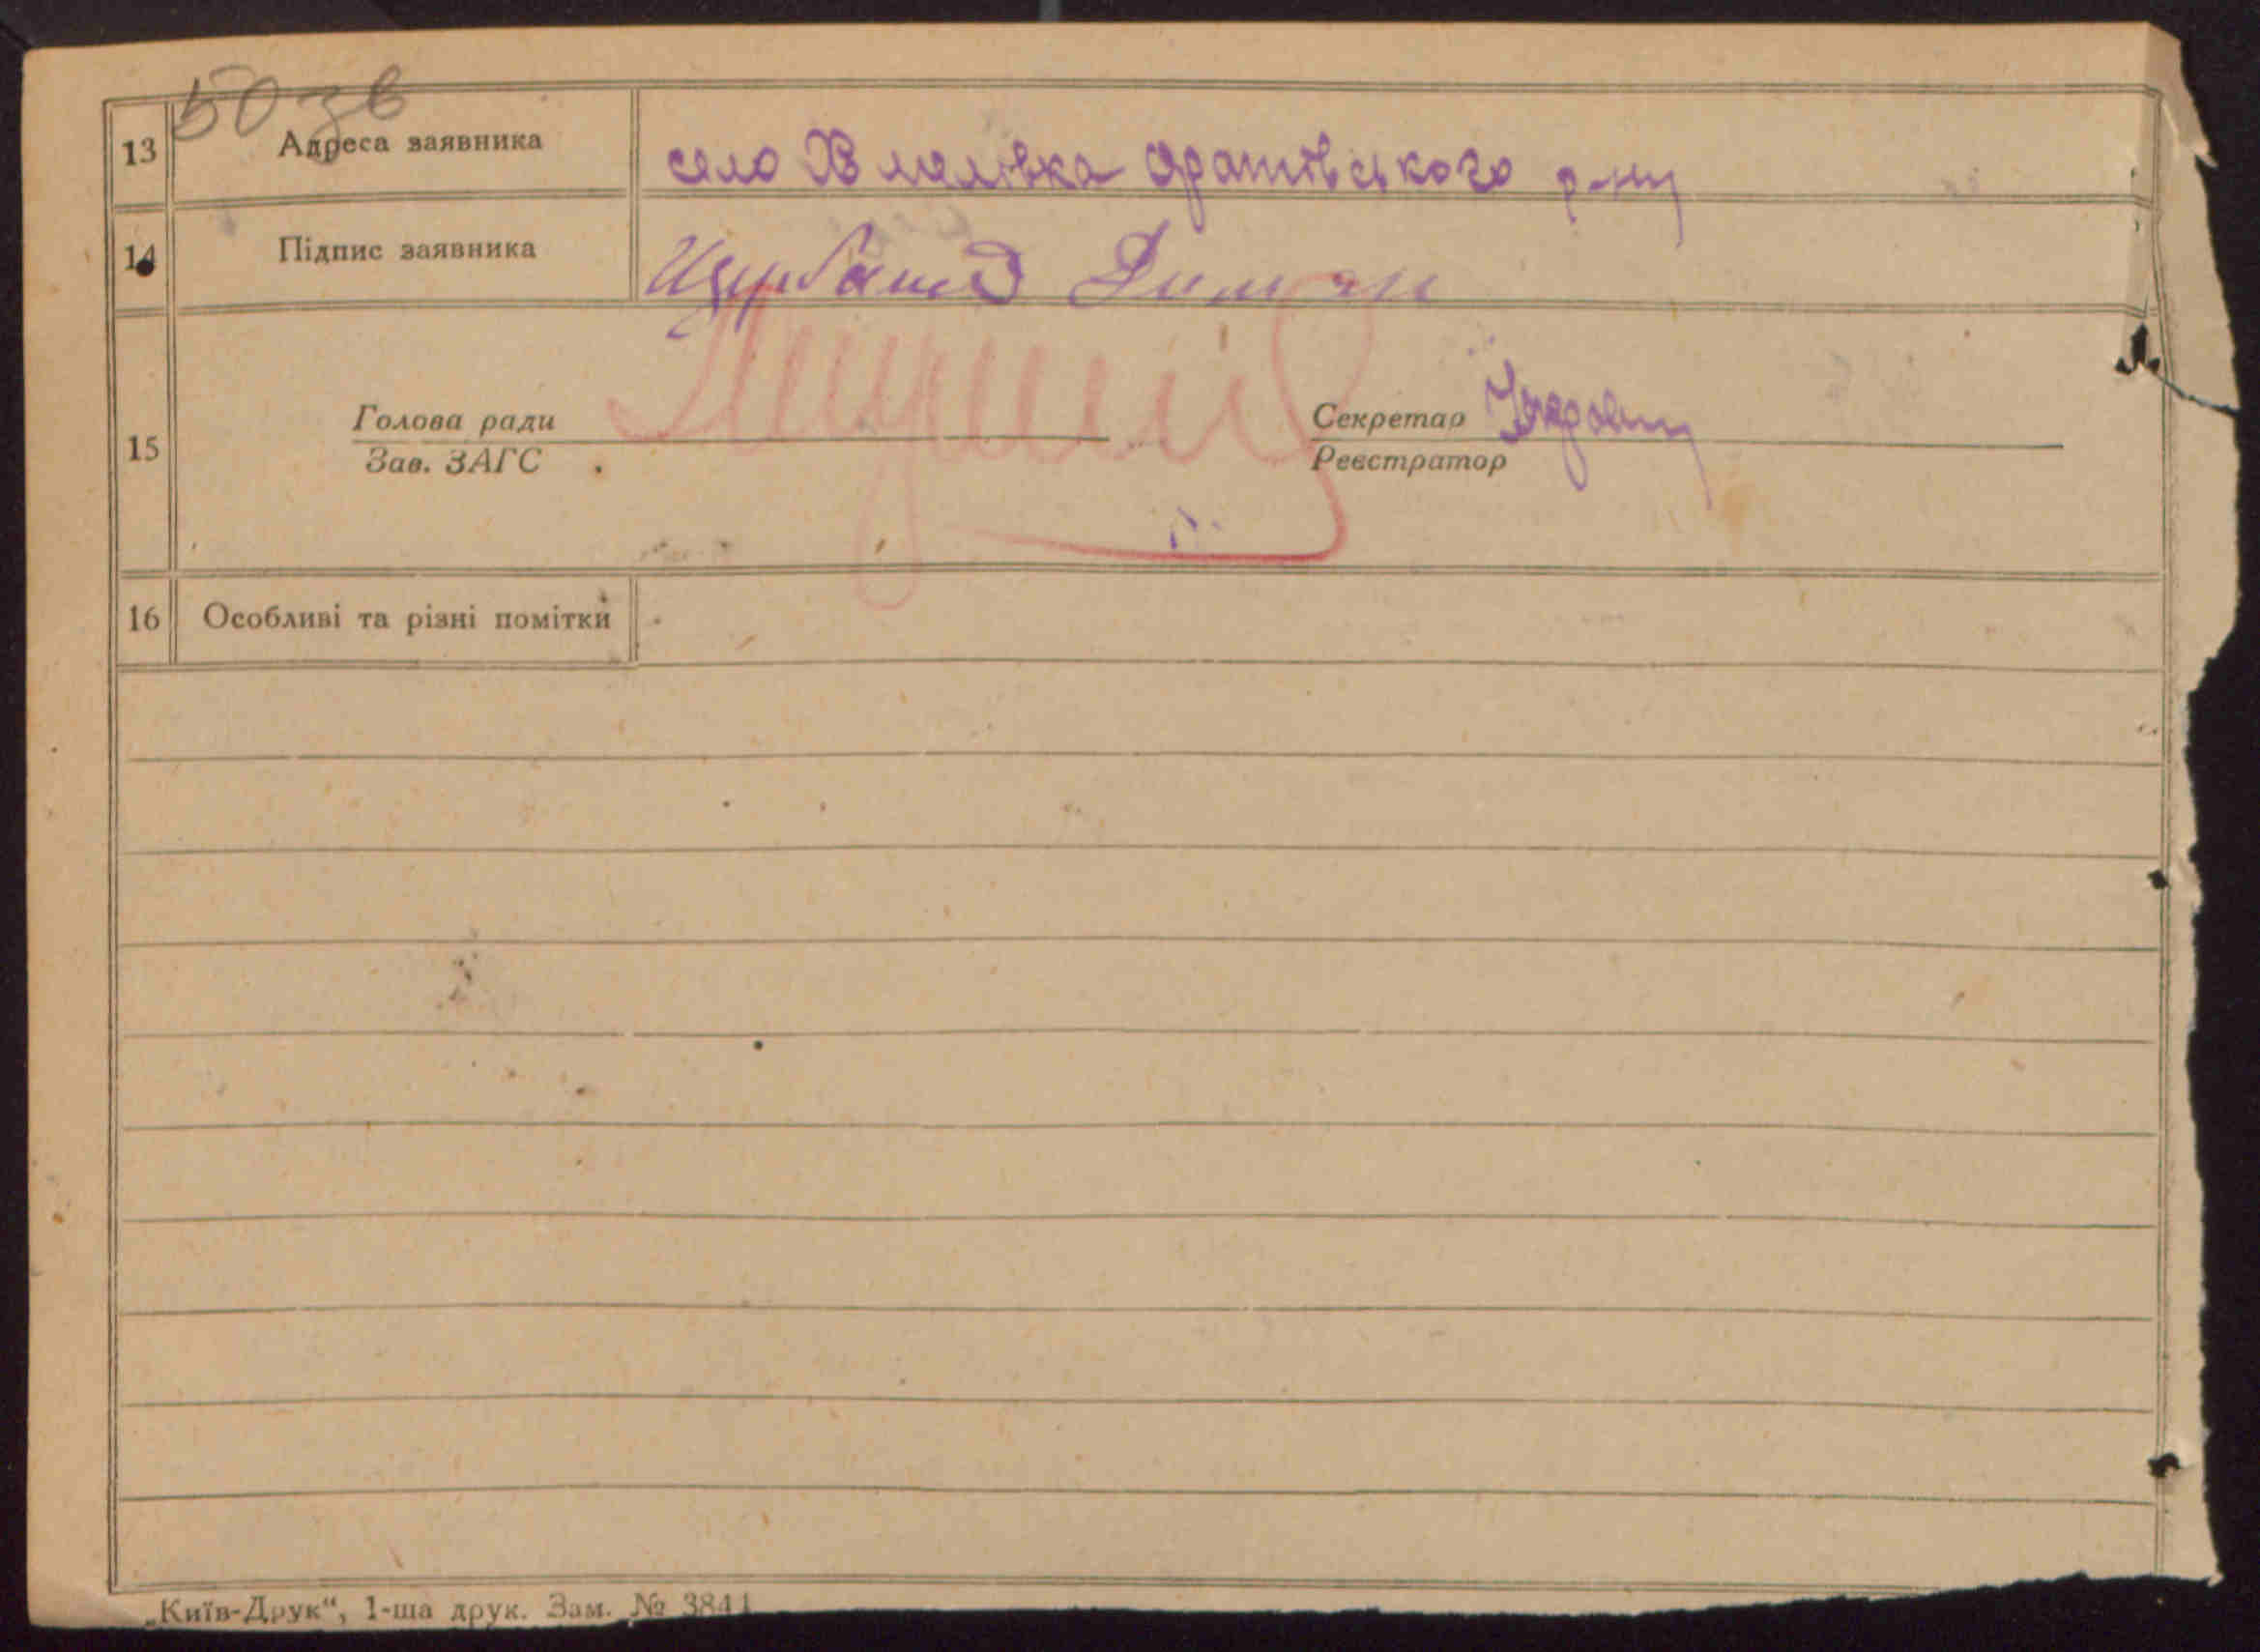 50 зв
13 Адреса заявника село Жмалівка Оратівського р-ну
14 Підпис заявника
15 Голова ради Секретар
Зав. ЗАГС Реєстратор
16 Особливі та різні помітки
„Київ-Друк“, 1-ша друк. Зам. № 3841